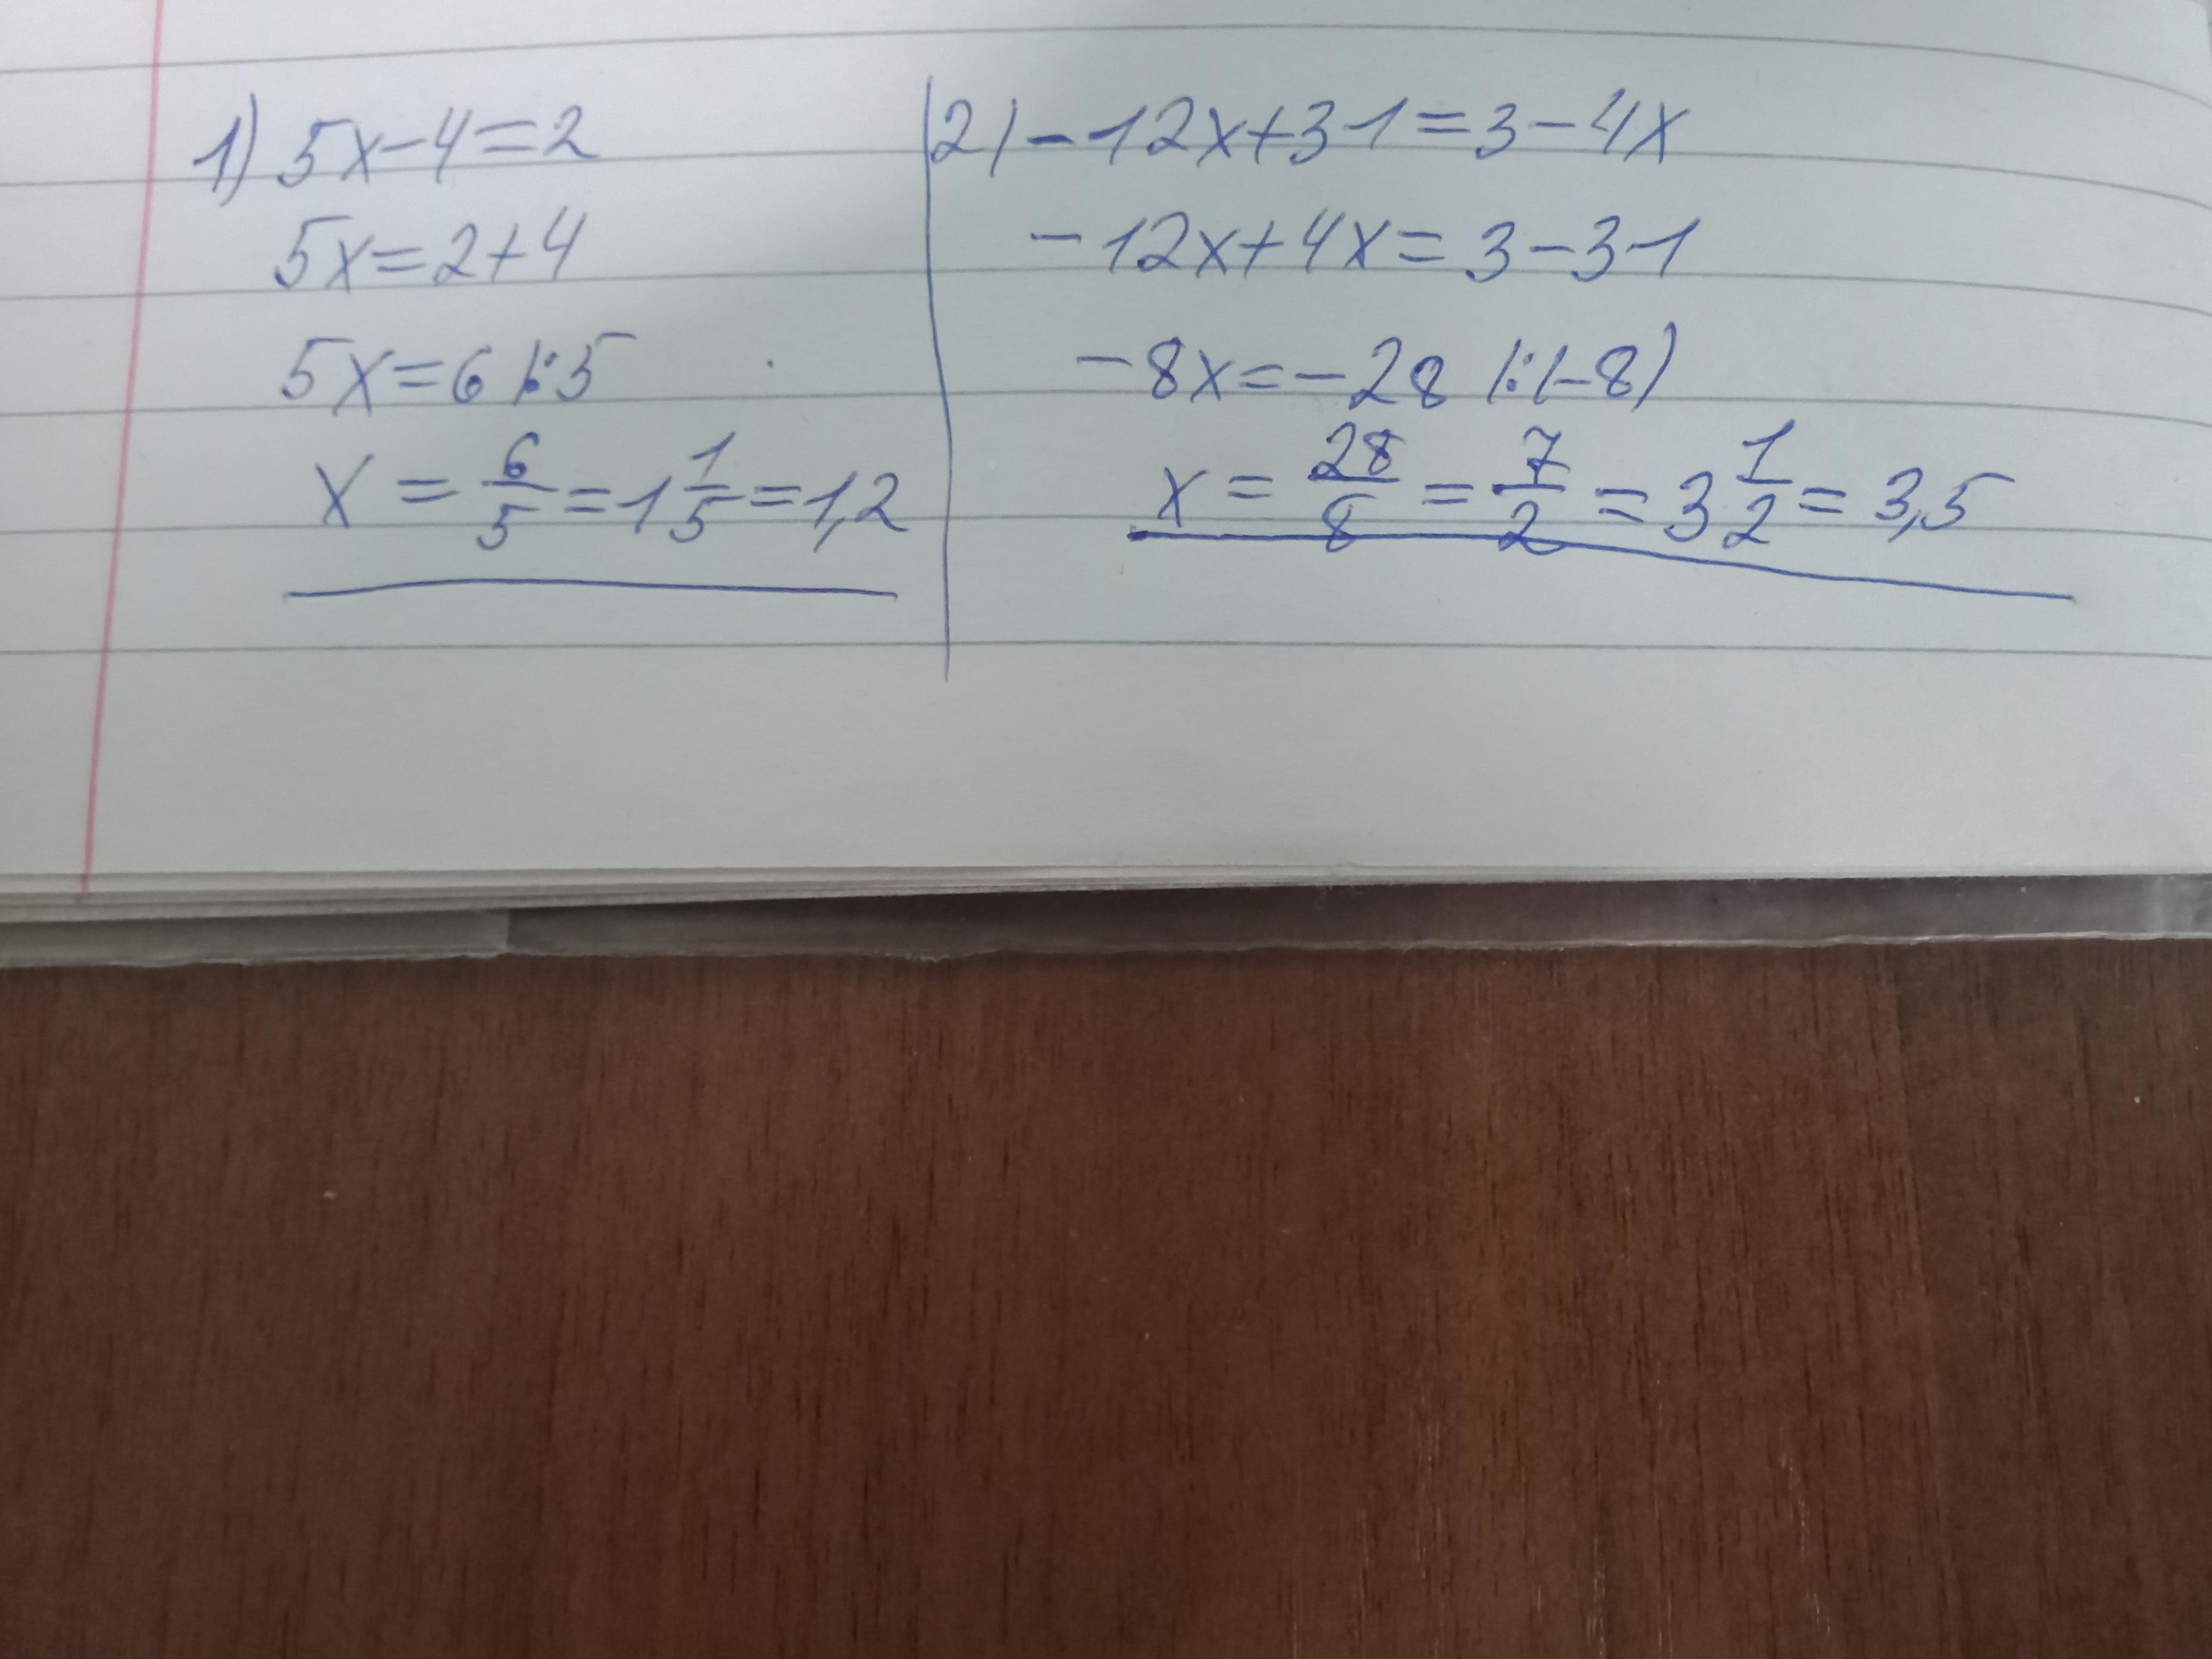 1) 5x-4=2
5x=2+4
5x=6 |:5
x = 6/5 = 1 1/5 = 1,2
2) -12x+31=3-4x
-12x+4x=3-31
-8x=-28 |:(-8)
x = 28/8 = 7/2 = 3 1/2 = 3,5